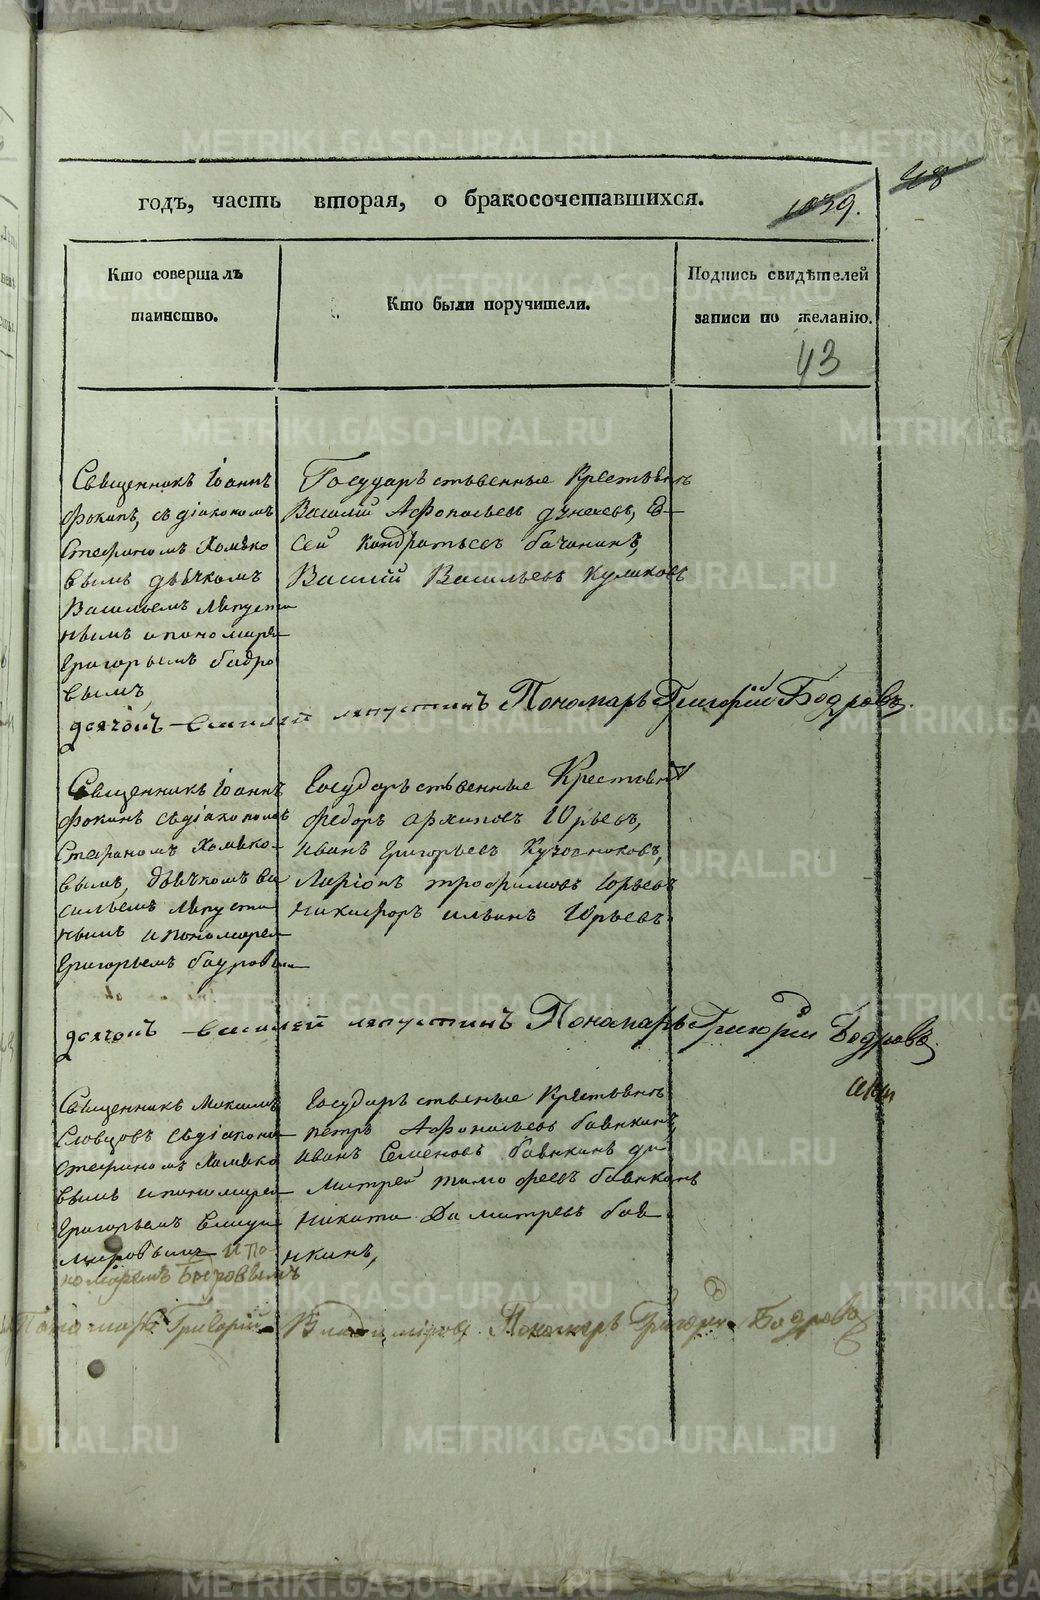 годъ, часть вторая, о бракосочетавшихся.
1039.
48
Кто совершалъ
таинство.
Кто были поручители.
Подпись свидѣтелей
записи по желанію.
43
Священникъ Іоаннъ
Фокинъ, съ діакономъ
Стефаномъ Хомяко
вымъ дьячкомъ
Васильемъ Ляпусти
нымъ и пономаре
Григорьемъ бодро
вымъ,
Государственные Крестьянъ
Василій Афонасьевъ
сей Кондратьевъ
Василій Васильевъ Куликовъ
дьячокъ василей ляпустинъ Пономарь Григорій Бодровъ.
Священникъ Іоаннъ
Фокинъ съ діакономъ
Стефаномъ Хомяко-
вымъ, дьячкомъ ва
сильемъ Ляпусти
нымъ и пономаре
Григорьемъ
Государственные Крестьян
федоръ архиповъ Юрьевъ,
иванъ Григорьевъ
Ларіонъ трофимовъ Юрьевъ
никифоръ ильинъ Юрьевъ
дьячокъ василей ляпустинъ Пономарь Григорій Бодровъ.
Священникъ Максимъ
Словцовъ съ діакона
Стефаномъ Хомяко
вымъ и пономаре
Григорьемъ Влади
міровымъ и по
номаремъ Бодровымъ
Государственые Крестьянъ
петръ Афонасьевъ бабкинъ,
иванъ Семеновъ бабкинъ ди
митрей тимофеевъ бабкинъ
никита Димитревъ баб
кинъ,
Пономарь Григорій Владиміровъ Пономарь Григорій Бодровъ